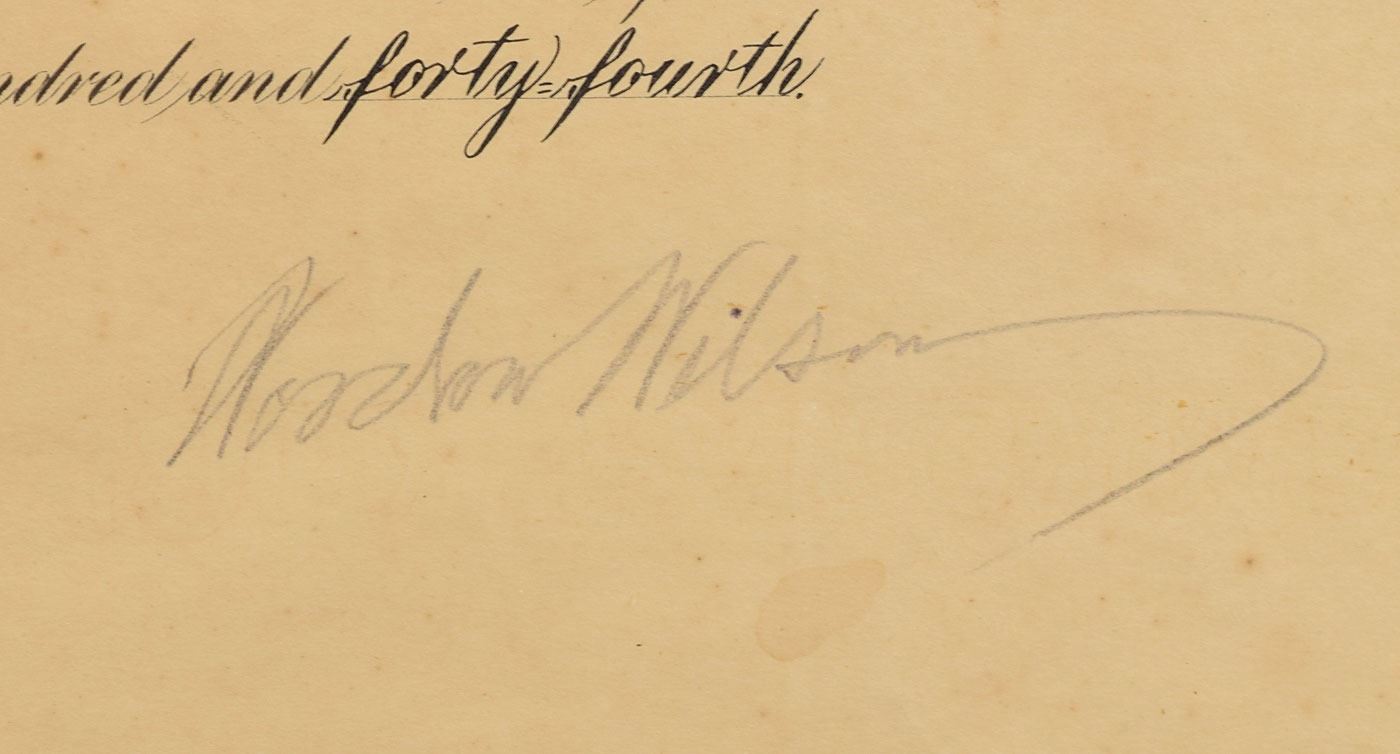 ndred and forty-fourth.
Woodrow Wilson